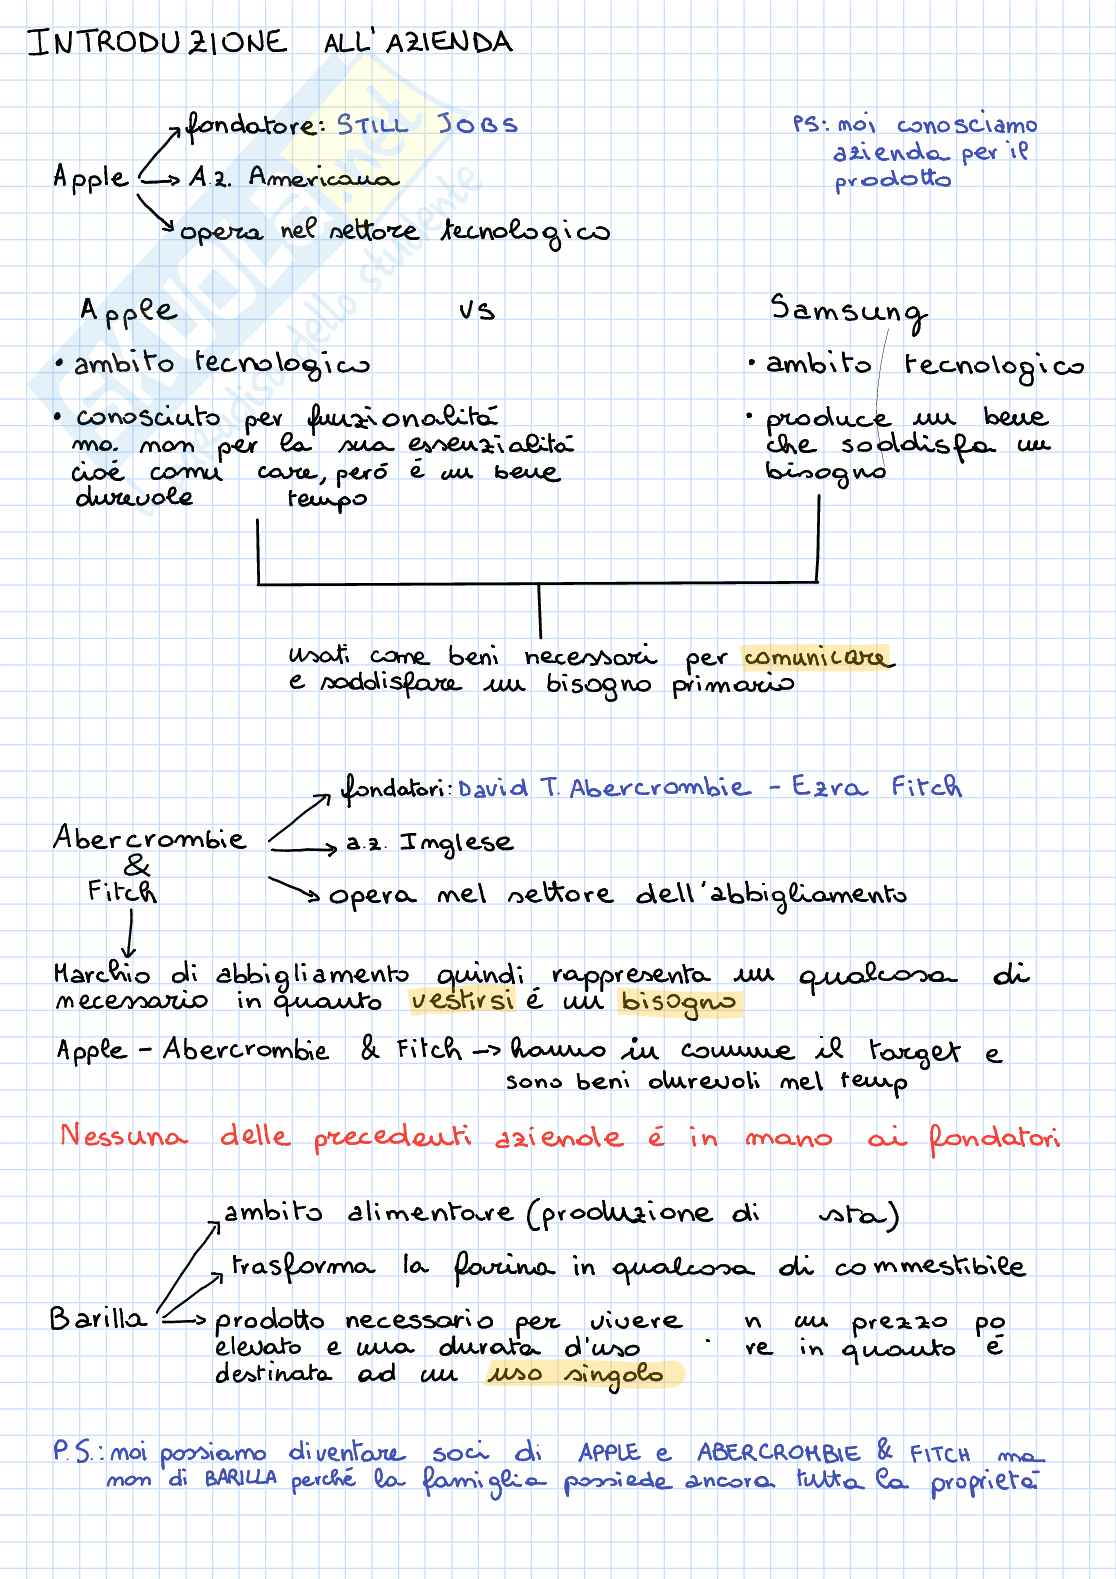 INTRODUZIONE ALL'AZIENDA
fondatore: STILL JOBS
PS: noi conosciamo
azienda per il
prodotto
Apple
A.z. Americana
opera nel settore tecnologico
Apple vs Samsung
• ambito tecnologico
• ambito tecnologico
• conosciuto per funzionalitá
ma non per la sua essenzialitá
cioé comu care, peró é un bene
durevole tempo
• produce un bene
che soddisfa un
bisogno
usati come beni necessari per comunicare
e soddisfare un bisogno primario
fondatori: David T. Abercrombie - Ezra Fitch
Abercrombie
&
Fitch
a.z. Inglese
opera nel settore dell'abbigliamento
Marchio di abbigliamento quindi rappresenta un qualcosa di
necessario in quanto vestirsi é un bisogno
Apple - Abercrombie & Fitch → hanno in comune il target e
sono beni durevoli nel temp
Nessuna delle precedenti aziende é in mano ai fondatori
ambito alimentare (produzione di sta)
trasforma la farina in qualcosa di commestibile
Barilla
prodotto necessario per vivere n un prezzo po
elevato e una durata d'uso re in quanto é
destinata ad un uso singolo
P.S.: noi possiamo diventare soci di APPLE e ABERCROMBIE & FITCH ma
non di BARILLA perché la famiglia possiede ancora tutta la proprietá
SKUOLA.net
paradiso dello studente